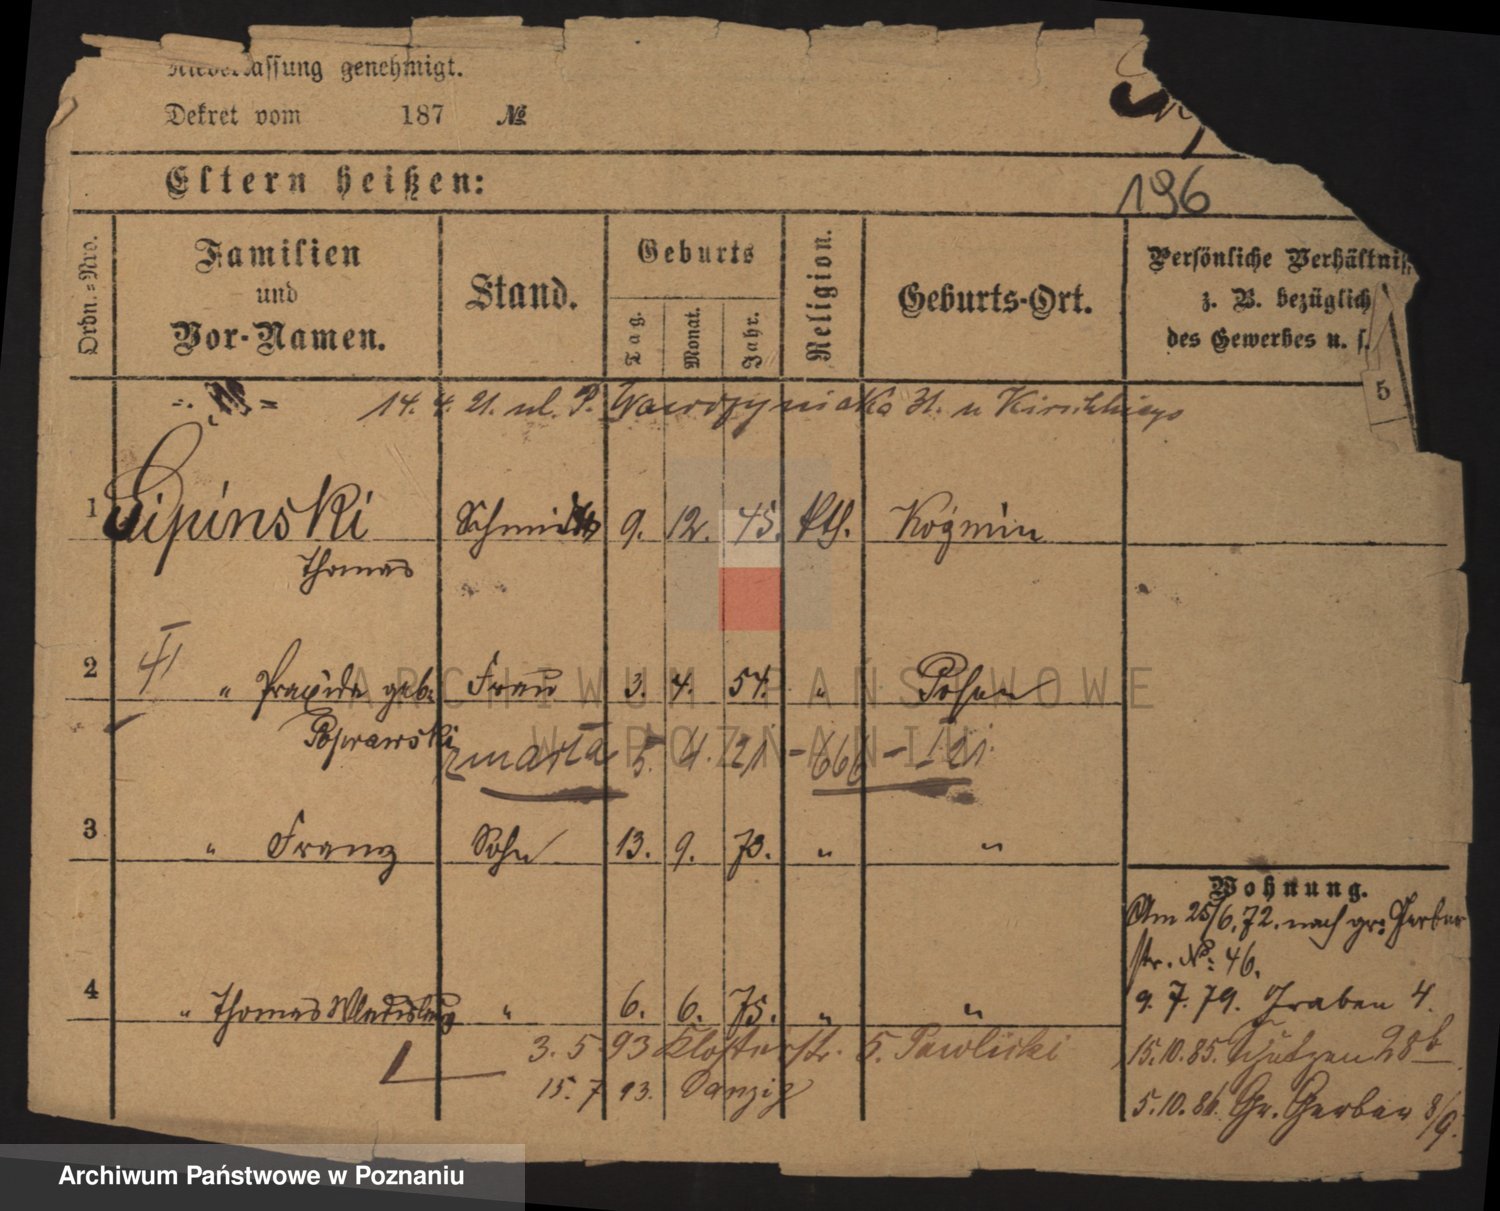 Niederlassung genehmigt.
Dekret vom 187 №
Eltern heißen:
196
Ordn.=Nro.
Familien
und
Vor-Namen.
Stand.
Geburts
Tag.
Monat.
Jahr.
Religion.
Geburts-Ort.
Persönliche Verhältnis
z. B. bezüglich
des Gewerbes u. s.
5
14. 4. 21. ul. P. Wawrzyniaka 31. u
1 Lipinski Schmidt 9. 12. 45. kth. Kozmin
Thomas
2 " Praxida geb. Frau 3. 4. 54. " Posen
Poprawski
zmarła 5. 4. 21 - 666 - I 21.
3 " Franz Sohn 13. 9. 73. " "
Wohnung.
Am 25/6. 72. nach gr: Gerber
str. №: 46.
4 " Thomas Wladislaus " 6. 6. 75. " "
9. 7. 79. Graben 4.
3. 5. 93 Klosterstr. 5. Pawlicki
15. 10. 85. Schützen 28b
15. 7. 93. Danzig
5. 10. 86. Gr. Gerber 8/9.
ARCHIWUM PAŃSTWOWE
W POZNANIU
Archiwum Państwowe w Poznaniu